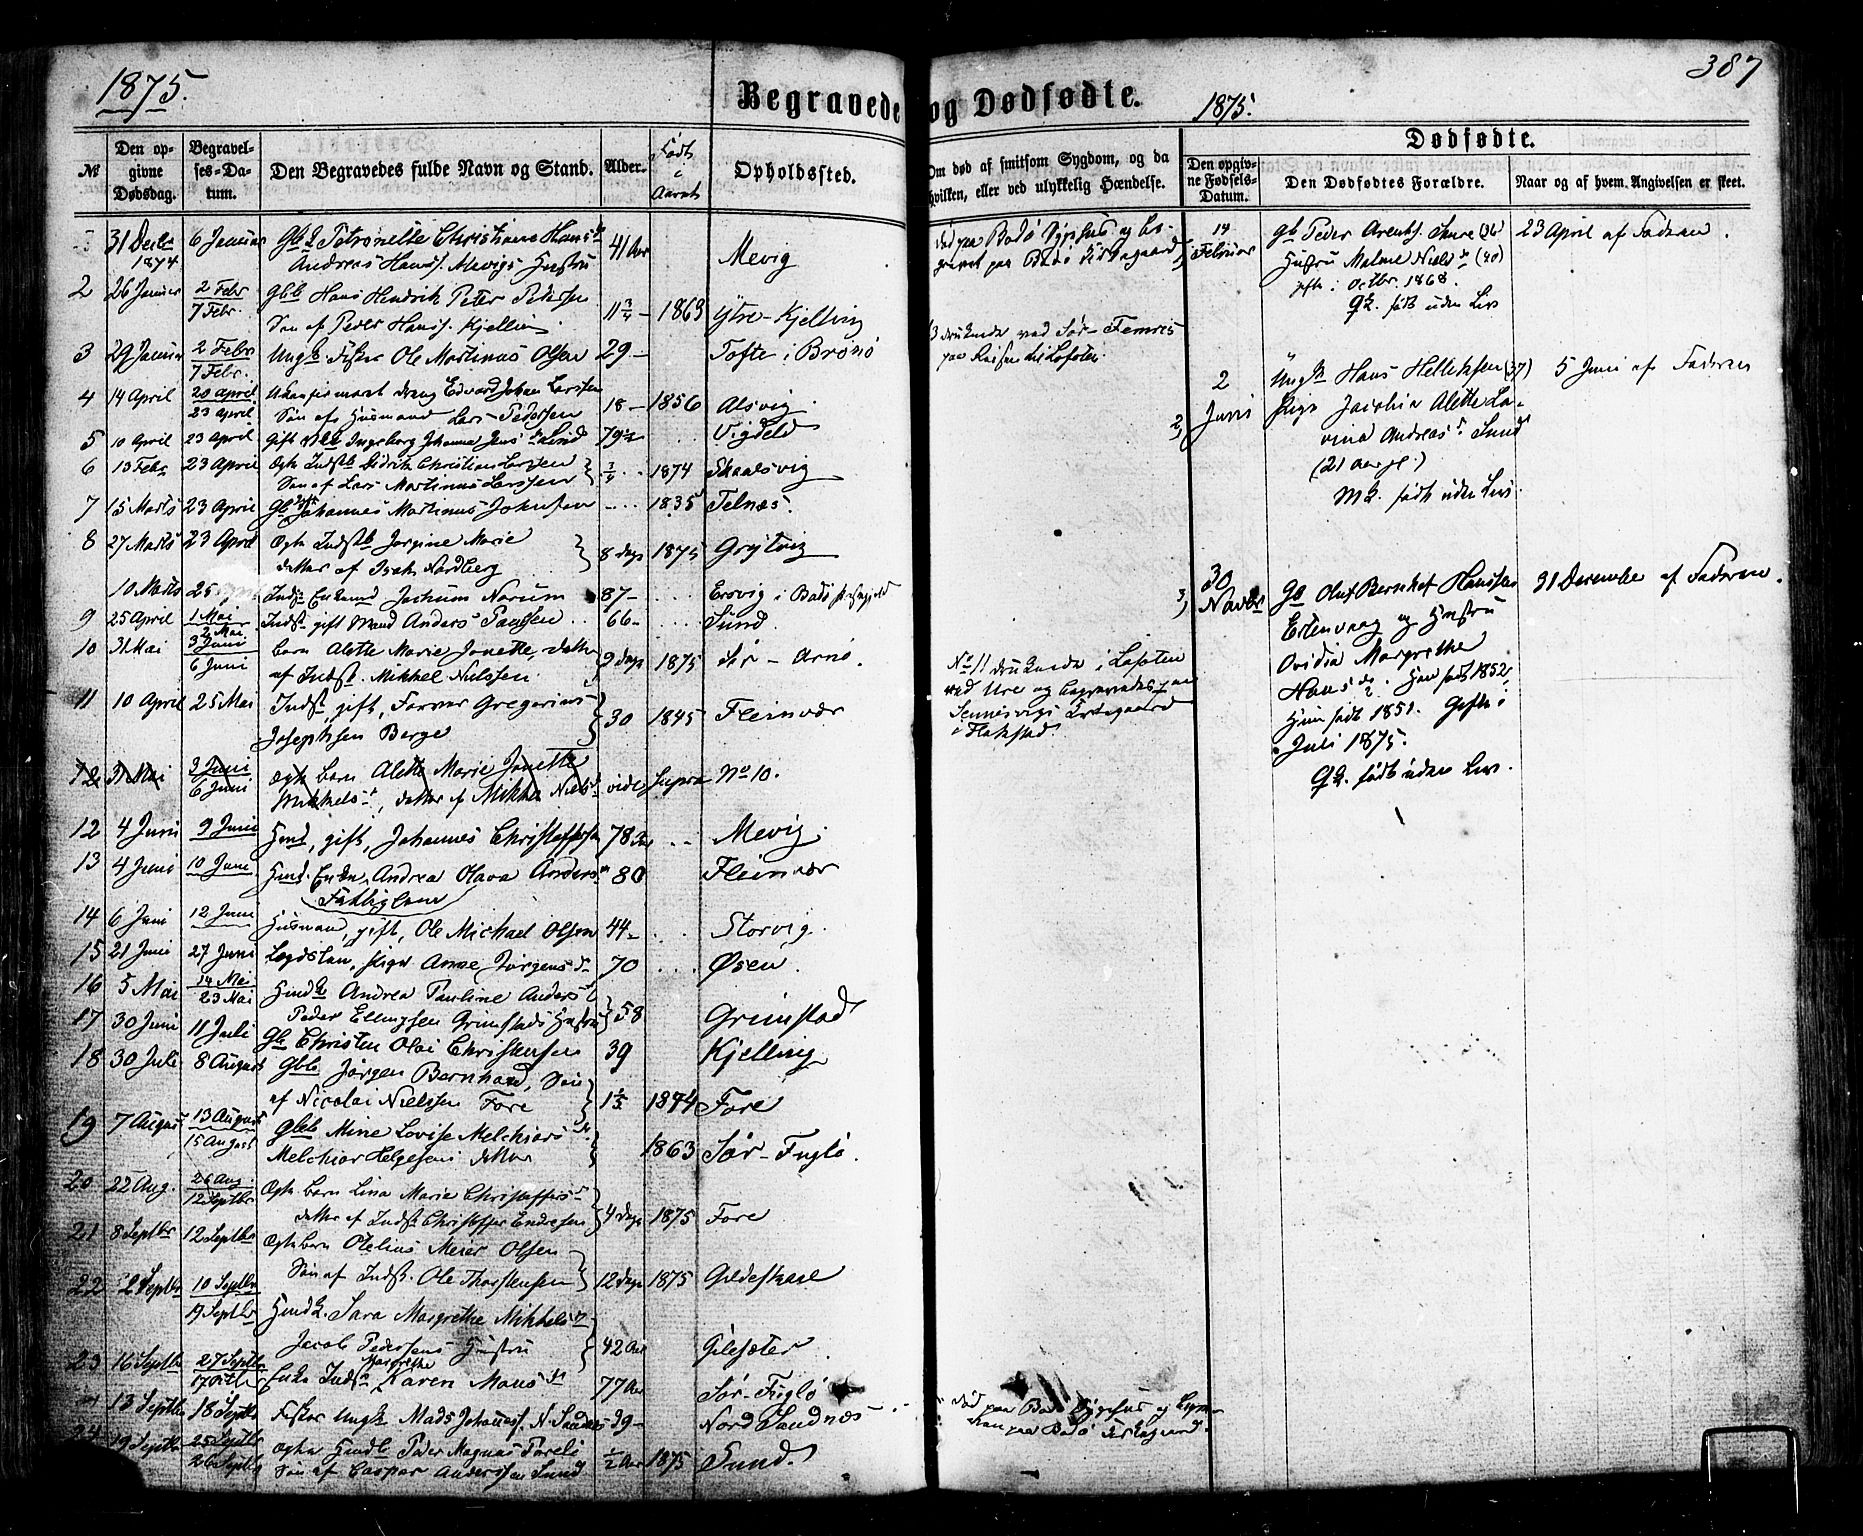 1875.
387
Begravede og Dødfødte.
1875.
Dødfødte.
№
Den opgivne Dødsdag.
Begravelses-Datum.
Den Begravedes fulde Navn og Stand.
Alder.
Født i Aaret
Opholdssted.
Om død af smitsom Sygdom, og da hvilken, eller ved ulykkelig Hændelse.
Den opgivne Fødsels-Datum.
Den Dødfødtes Forældre.
Naar og af hvem Angivelsen er skeet.
31 Decbr 6 Januar Gbk Petronelle Christiane Hansdr 41 Aar
1874 Andreas Hanss. Mevigs Hustru Mevig
2 26 Januar 2 Febr Gbb Hans Hendrik Peter Pedersen
7 Febr. Søn af Peder Hanss. Kjelling 11 3/4 1863 Ytre-Kjelling
3 29 Januar 2 Febr Ungk. Fisker Ole Martinus Olsen 29 Tofte i Brønø
7 Febr.
4 14 April 20 April Ukonfirmeret dreng Edvard Johan Larsen
23 April Søn af Husmand Lars Pedersen 18 1856 Alsvig
5 10 April 23 April gift Ingeborg Johanna Jens dr Lund 79 Vigdeld
6 13 Febr 23 April Ægte Indstb Didrik Christian Larssen
Søn af Lars Martinus Larssen 3/4 1874 Skaalsvig
7 15 Marts 23 April Gb Johannes Martinus Johnsen 1835 Telnæs.
8 27 Marts 23 April Ægte Indstb Jørgine Marie
datter af Isak Nordberg 8 dage 1875 Grytvig
10 Marts 25 Indst Enkemd Jochum Norum 87 Ersvig i Bodø Præstgjeld
9 25 April 1 Mai Indst gift Mand Anders Paulsen 66 Sund.
2 Mai.
10 31 Mai 3 Juni barn Alette Marie Jonette, datter
6 Juni af Indst. Mikkel Nielssen. 9 dage 1875 Sør-Arnø.
11 10 April 25 Mai Indst, gift, Forver Gregorius
Josephsen Berge 30 1845 Fleinvær
12 31 Mai 3 Juni Ægte barn Alette Marie Jonette
6 Juni Mikkels dr, datter af Mikkel Niels vide Supra No 10.
12 4 Juni 9 Juni Hmd, gift, Johannes Christoffersen 78 Aar Mevig.
13 4 Juni 10 Juni Hmd. Enke, Andrea Olava Andersdr 80 Fleinvær
Fattiglem
14 6 Juni 12 Juni Husmand, gift, Ole Michael Olsen 44 Storvig.
15 21 Juni 27 Juni Lægdslem, pige Anne Jørgensdr 70 Øsen.
16 5 Mai 14 Mai Hmdk Andrea Pauline Anders
23 Mai Peder Ellingsen Grimstads Hustru 58 Grimstad
17 30 Juni 11 Juli Gb Christen Olai Christensen 39 Kjelling
18 30 Juli 8 August Gbb Jørgen Bernhard, Søn
af Nicolai Nielssen Fore 1874 Fore
19 7 August 13 August Gbb Mine Lovise Melchiorsdr.
15 August Melchior Helgesens datter 1863 Sør-Fuglø.
20 22 Aug. 26 Aug. Ægte barn Lina Marie Christoffersdr
12 Septbr datter af Indst Christoffer Endresen 4 dage 1875 Fore
21 8 Septbr 12 Septbr Ægte barn Otelius Meier Olsen
Søn af Indst. Ole Thorstensen 12 dage 1875 Gildeskaal
22 2 Septbr 10 Septbr Hmdk. Sara Margrethe Mikkelsdr
19 Septbr Jacob Pedersens Hustru 42 Aar Gilesæter
23 16 Septbr 27 Septbr Enke Indst Karen Margrethe Monsdr 77 Aar Sør-Fuglø
13 Septbr 18 Septbr Fisker Ungk. Mads Johaness. N. Sandnes 39 Nord Sandnæs
24 19 Septbr 25 Septbr Ægte Hmdb Peder Magnus Parelø 1/2 Aar
26 Septbr Søn af Caspar Anderssen Sund 1875 Sund.
død paa Bodø Sygehus og be-
gravet paa Bodø Kirkegaard
3 druknede ved Sør-Femris
paa Reisen til Lofoten.
No 11 druknede i Lofoten
ved Ure og begravedes paa
Sennesvigs Kirkegaard
i Flakstad
død paa Bodø Sygehus og begra-
ven paa Bodø Kirkegaard.
14 Februar
gb Peder Arents. Inre (36
Hustru Malene Nielsdr (40)
gifte i Octbr. 1868.
Qk. født uden Liv
23 April af Faderen.
2)
2 Juni
Ungk Hans Hellesen (37)
Pige Jacobia Alette La-
vina Andreasdr Sund
(21 Aar gl.)
Mk. født uden Liv.
5 Juni af Faderen
3)
30 Novbr
Gb Oluf Bernhof Hansen
Ertenvaag og Hustru
Ovidia Margrethe
Hansdr. Han født 1852,
Hun født 1851. Gifte i
Juli 1875.
Qk. født uden Liv.
31 December af Faderen.